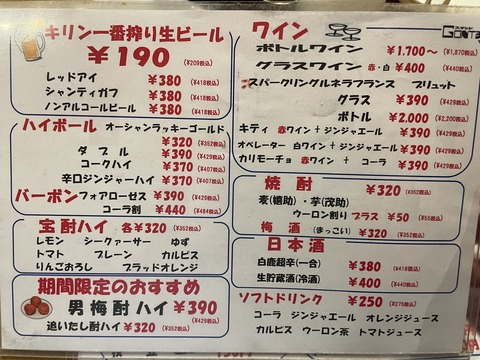 キリン一番搾り生ビール
￥190 (￥209税込)
レッドアイ ￥380 (￥418税込)
シャンティガフ ￥380 (￥418税込)
ノンアルコールビール ￥380 (￥418税込)
ハイボール オーシャンラッキーゴールド
￥320 (￥352税込)
ダブル ￥390 (￥429税込)
コークハイ ￥370 (￥407税込)
辛口ジンジャーハイ ￥370 (￥407税込)
バーボン フォアローゼス ￥390 (￥429税込)
コーラ割 ￥440 (￥484税込)
宝酎ハイ 各￥320 (￥352税込)
レモン シークァーサー ゆず
トマト プレーン カルピス
りんごおろし ブラッドオレンジ
期間限定のおすすめ
男梅酎ハイ ￥390 (￥429税込)
追いたし酎ハイ ￥320 (￥352税込)
ワイン
ボトルワイン ￥1,700〜 (￥1,870税込)
グラスワイン 赤・白 ￥400 (￥440税込)
スパークリングルネラフランス ブリュット
グラス ￥390 (￥429税込)
ボトル ￥2,000 (￥2,200税込)
キティ 赤ワイン＋ジンジャエール ￥390 (￥429税込)
オペレーター 白ワイン＋ジンジャエール ￥390 (￥429税込)
カリモーチョ 赤ワイン ＋ コーラ ￥390 (￥429税込)
焼酎 ￥320 (￥352税込)
麦(麟助)・芋(茂助)
ウーロン割り プラス ￥50 (￥55税込)
梅酒 (まっこい) ￥320 (￥352税込)
日本酒
白鹿超辛(一合) ￥380 (￥418税込)
生貯蔵酒(冷酒) ￥400 (￥440税込)
ソフトドリンク ￥250 (￥275税込)
コーラ ジンジャエール オレンジジュース
カルピス ウーロン茶 トマトジュース